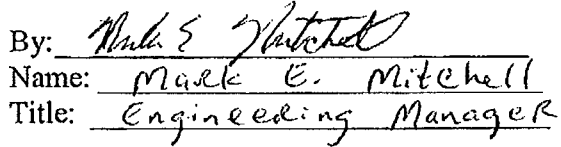 By: Mark E Mitchell
Name: Mark E. Mitchell
Title: Engineering Manager